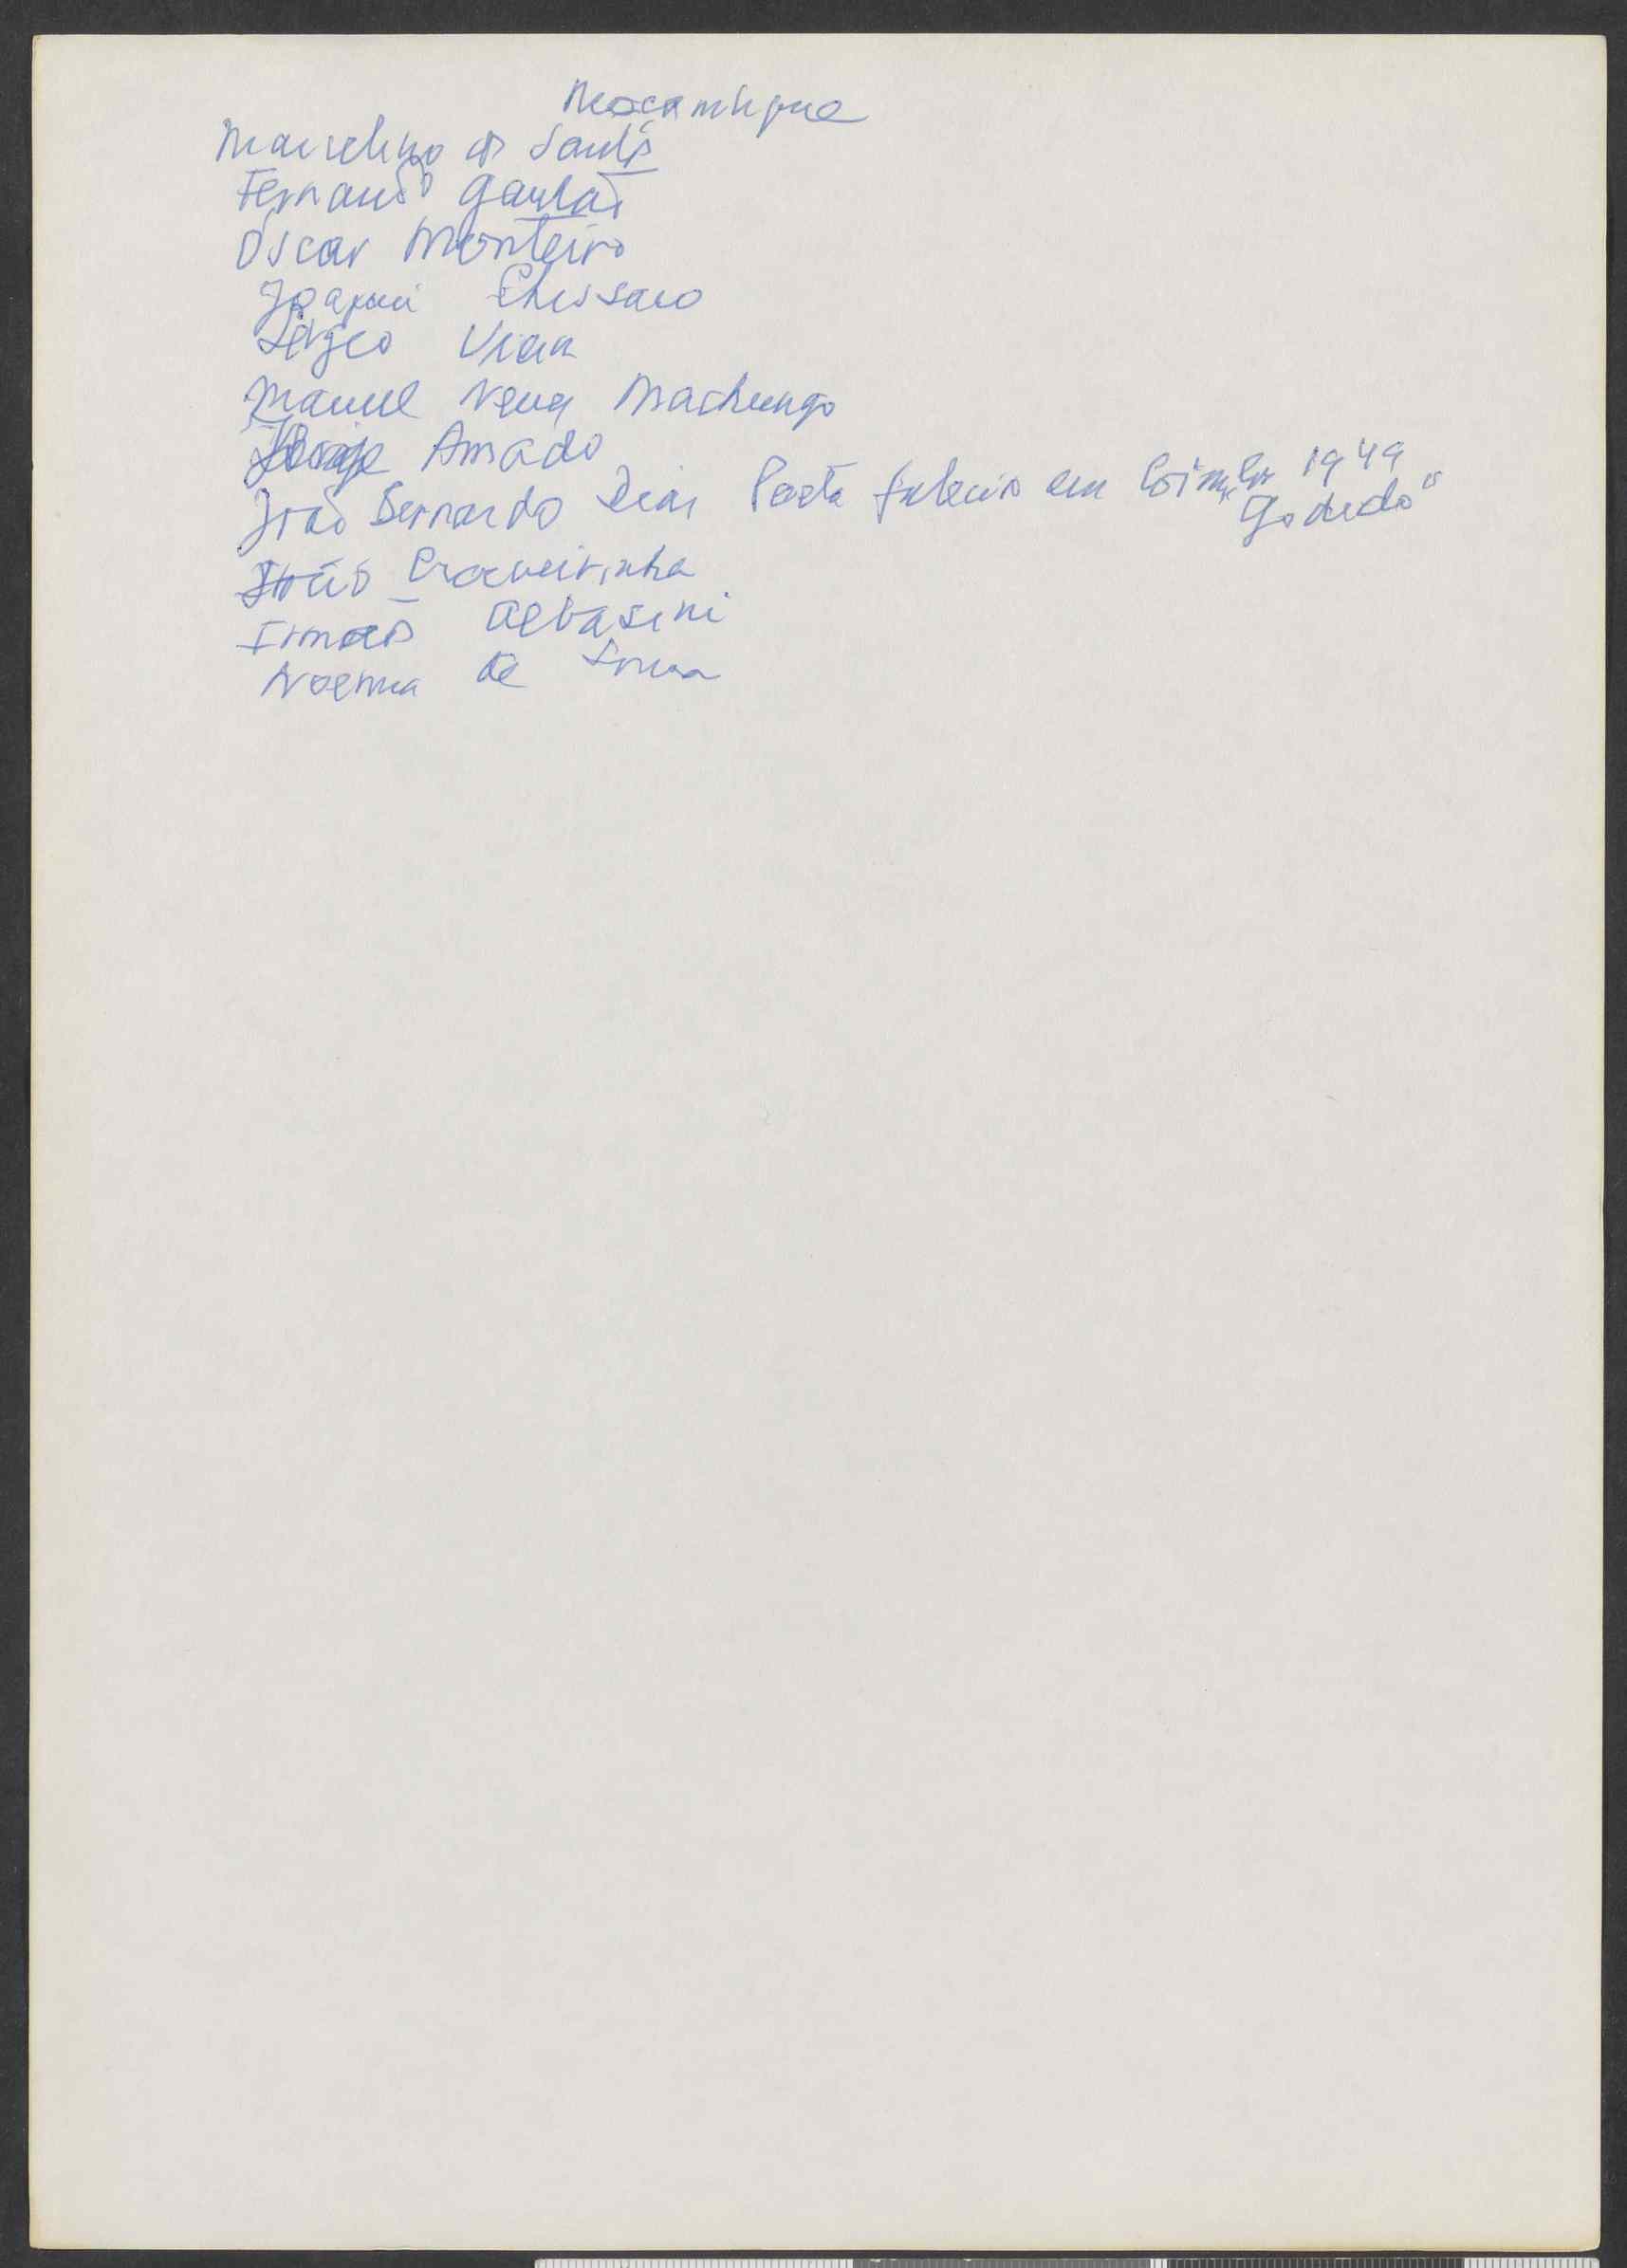 Moçambique
Marcelino dos Santos
Fernando Ganhão
Oscar Monteiro
Joaquim Chissano
Sérgio Vieira
Manuel Neves Machungo
Jorge Amado
João Bernardo Dias Poeta faleceu em Coimbra 1949
"Godido"
João Craveirinha
Irmãos Albasini
Noemia de Sousa